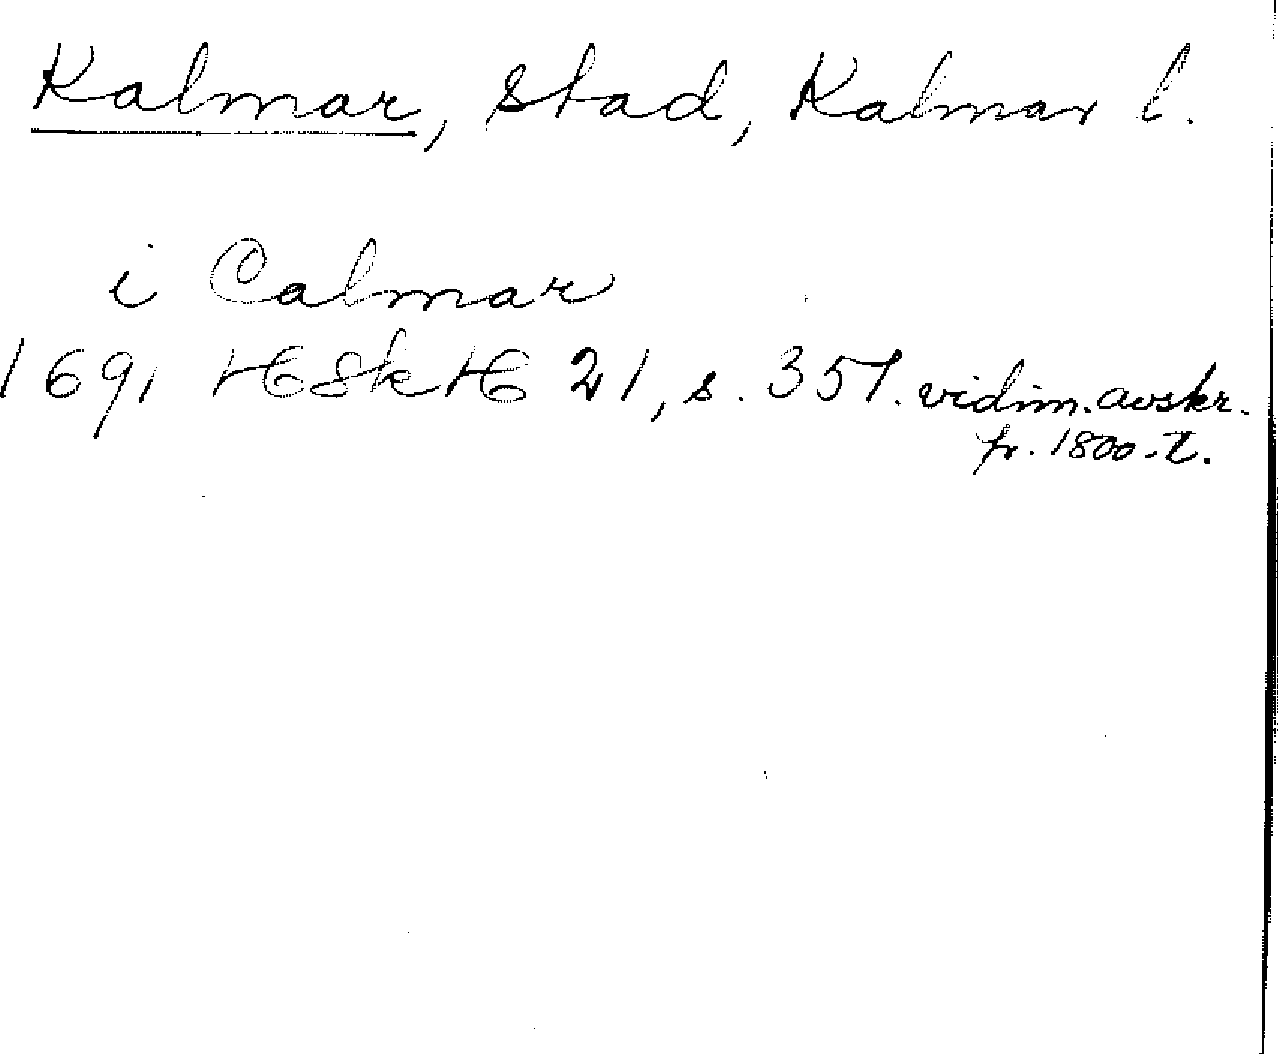 Kalmar, stad, Kalmar l.
i Calmar
1691 HSkH 21, s. 357. vidim. avskr.
fr. 1800-t.